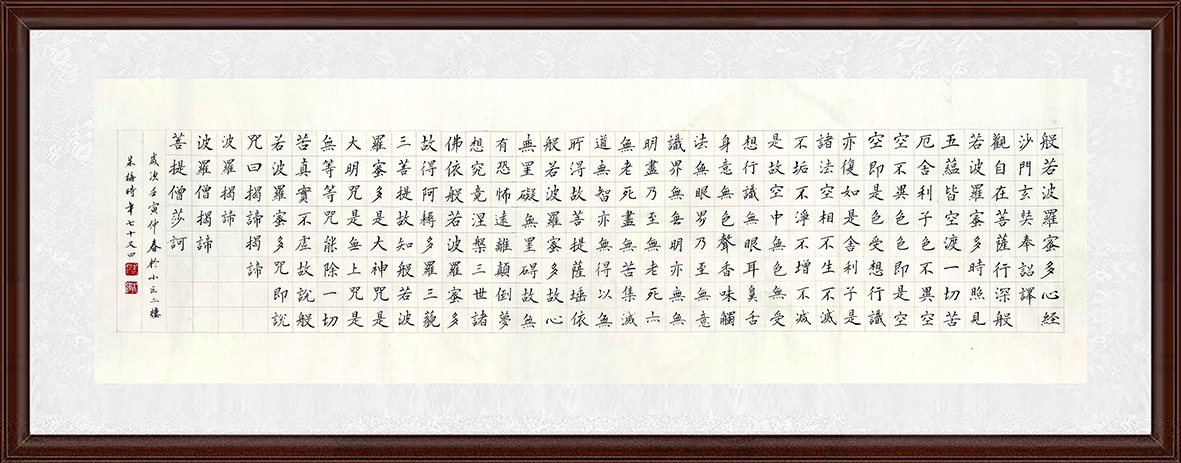 般若波羅蜜多心経
沙門玄奘奉詔譯
觀自在菩薩行深般
若波羅蜜多時照見
五蘊皆空渡一切苦
厄舍利子色不異空
空不異色色即是空
空即是色受想行識
亦復如是舍利子是
諸法空相不生不滅
不垢不淨不增不減
是故空中無色無受
想行識無眼耳鼻舌
身意無色聲香味觸
法無眼界乃至無意
識界無無明亦無無
明盡乃至無老死亦
無老死盡無苦集滅
道無智亦無得以無
所得故菩提薩埵依
般若波羅蜜多故心
無罣礙無罣碍故無
有恐怖遠離顛倒夢
想究竟涅槃三世諸
佛依般若波羅蜜多
故得阿耨多羅三藐
三菩提故知般若波
羅蜜多是大神咒是
大明咒是無上咒是
無等等咒能除一切
苦真實不虛故說般
若波羅蜜多咒即說
咒曰揭諦揭諦
波羅揭諦
波羅僧揭諦
菩提僧莎訶
歲次壬寅仲春於小二樓
朱梅時年七十又四